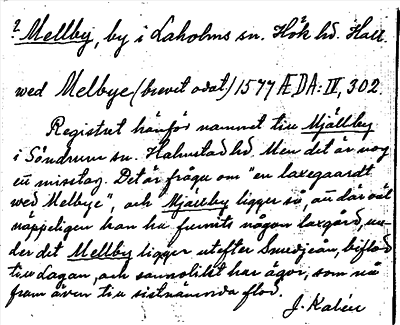 ? Mellby, by i Laholms sn. Hök hd, Hall
wed Melbye (brevit odat) 1577 ÆDA: IV, 302.
Registret hänför namnet till Mjällby
i Söndrum sn. Halmstad hd. Men det är nog
ett misstag. Det är fråga om "en laxegaardt
wed Melbye", och Mjällby ligger så, att där väl
näppeligen kan ha funnits någon laxgård, un-
der det Mellby ligger utefter Smedjeån, biflod
till Lagan, och sannolikt har ägor, som nå
fram även till sistnämnda flod.
J. Kalén